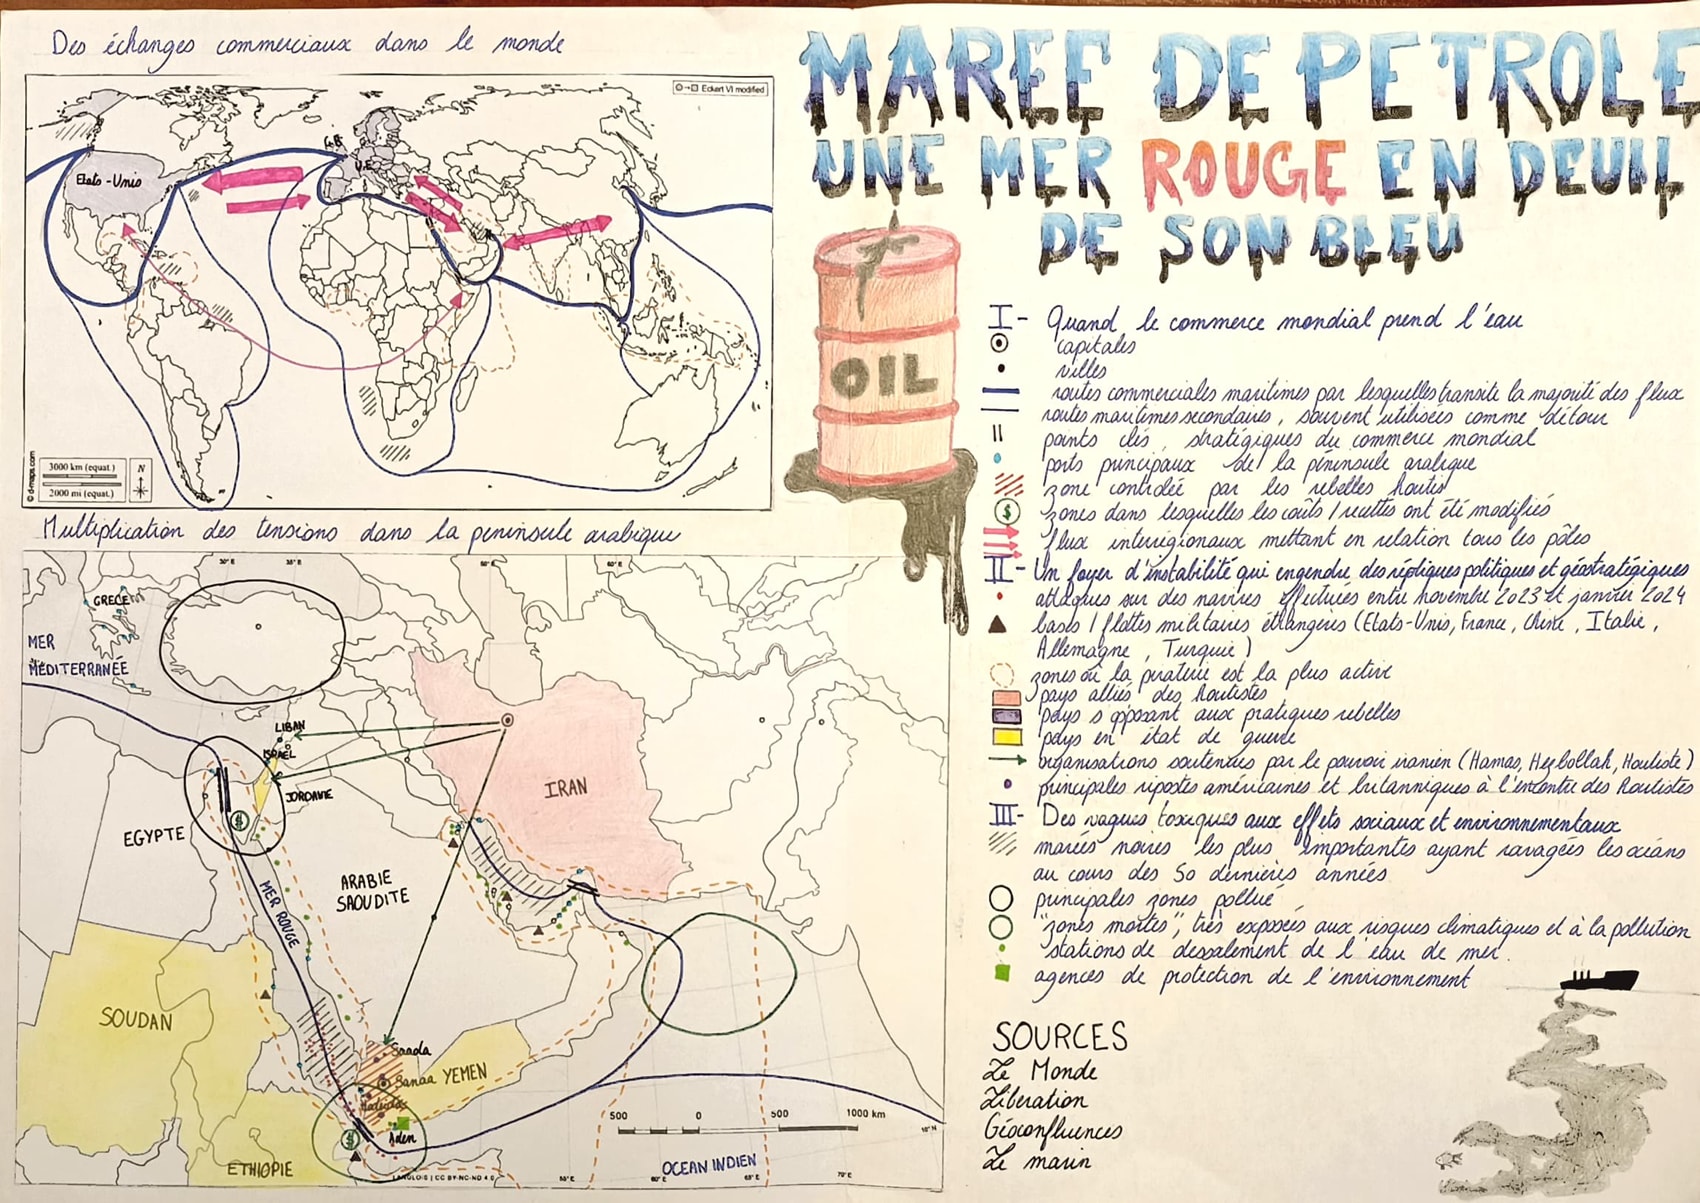 Des échanges commerciaux dans le monde
Eckert VI modified
Etats-Unis
G.B
U.E
© d-maps.com
3000 km (equat.)
2000 mi (equat.)
N
MAREE DE PETROLE
UNE MER ROUGE EN DEUIL
DE SON BLEU
OIL
I- Quand le commerce mondial prend l'eau
capitales
villes
routes commerciales maritimes par lesquelles transite la majorité des flux
routes maritimes secondaires, souvent utilisées comme détour
points clés, stratégiques du commerce mondial
ports principaux de la péninsule arabique
zone contrôlée par les rebelles houtis
$ zones dans lesquelles les coûts / recettes ont été modifiés
flux interrégionaux mettant en relation tous les pôles
II- Un foyer d'instabilité qui engendre des répliques politiques et géostratégiques
attaques sur des navires effectuées entre novembre 2023 et janvier 2024
bases / flottes militaires étrangères (Etats-Unis, France, Chine, Italie,
Allemagne, Turquie)
zones où la piraterie est la plus active
pays alliés des houtistes
pays s'opposant aux pratiques rebelles
pays en état de guerre
organisations soutenues par le pouvoir iranien (Hamas, Hezbollah, Houtiste)
principales ripostes américaines et britanniques à l'encontre des houtistes
III- Des vagues toxiques aux effets sociaux et environnementaux
marées noires les plus importantes ayant ravagées les océans
au cours des 50 dernières années
principales zones pollué
"zones mortes", très exposées aux risques climatiques et à la pollution
stations de dessalement de l'eau de mer.
agences de protection de l'environnement
SOURCES
Le Monde
Libération
Géoconfluences
Le marin
Multiplication des tensions dans la péninsule arabique
30° E
35° E
50° E
60° E
GRECE
MER
MÉDITERRANÉE
LIBAN
ISRAËL
JORDANIE
IRAN
EGYPTE
$
ARABIE
SAOUDITE
MER ROUGE
SOUDAN
Saada
Sanaa
YEMEN
Aden
$
ETHIOPIE
500 0 500 1000 km
10° N
OCEAN INDIEN
LANGLOIS | CC BY-NC-ND 4.0
55° E
60° E
65° E
70° E